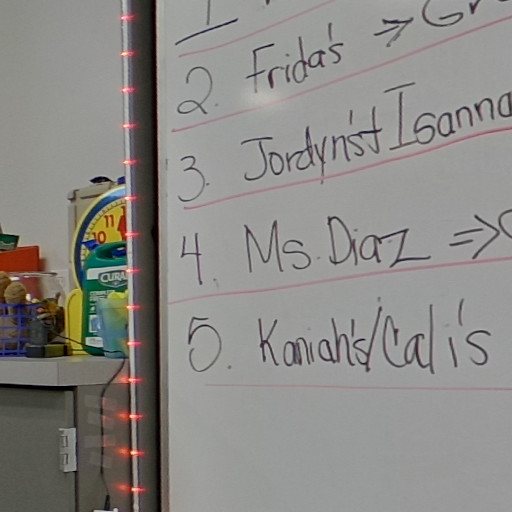 1
2. Frida's => Gr
3. Jordyn's + Isanna
4. Ms. Diaz =>
5. Kaniah's/Cali's
11
10
CURA